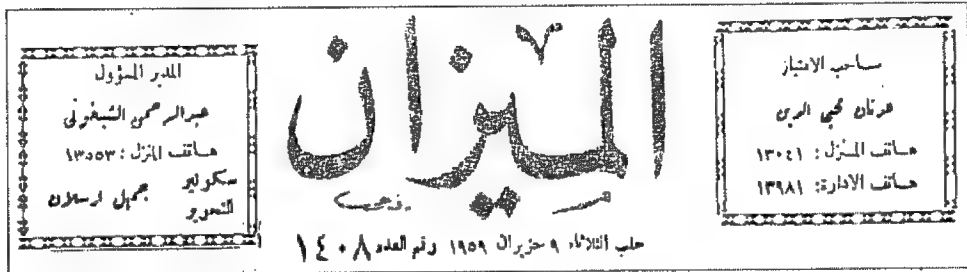 صاحب الامتياز
عرنان محيي الدين
هاتف المنزل: ١٣٠٤١
هاتف الادارة: ١٣٩٨١
الميزان
حلب الثلاثاء ٩ حزيران ١٩٥٩ رقم العدد ١٤٠٨
المدير المسؤول
عبدالرحمن الشيغوني
هاتف المنزل: ١٣٥٥٣
سكرتير التحرير جميل ارسلان